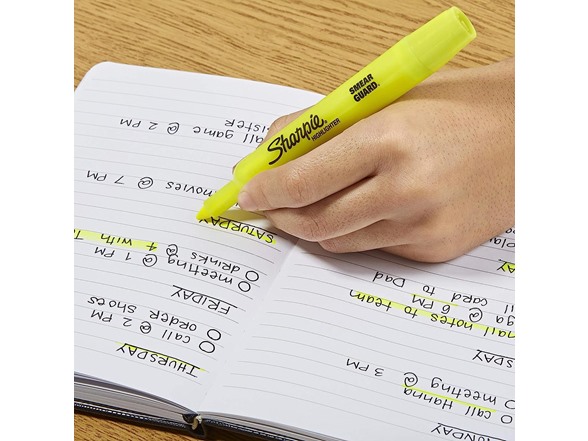 Sharpie®
HIGHLIGHTER
SMEAR
GUARD®
SUNDAY
call Hanna
meeting @ 3 PM
SDAY
mail notes to team
ga @ 6 PM
il card to Dad
DAY
play
THURSDAY
call @ 2 PM
order shoes
FRIDAY
meeting @ 1 PM
drinks @ 7 with T
SATURDAY
movies @ 7 PM
all game @ 2 PM
sister